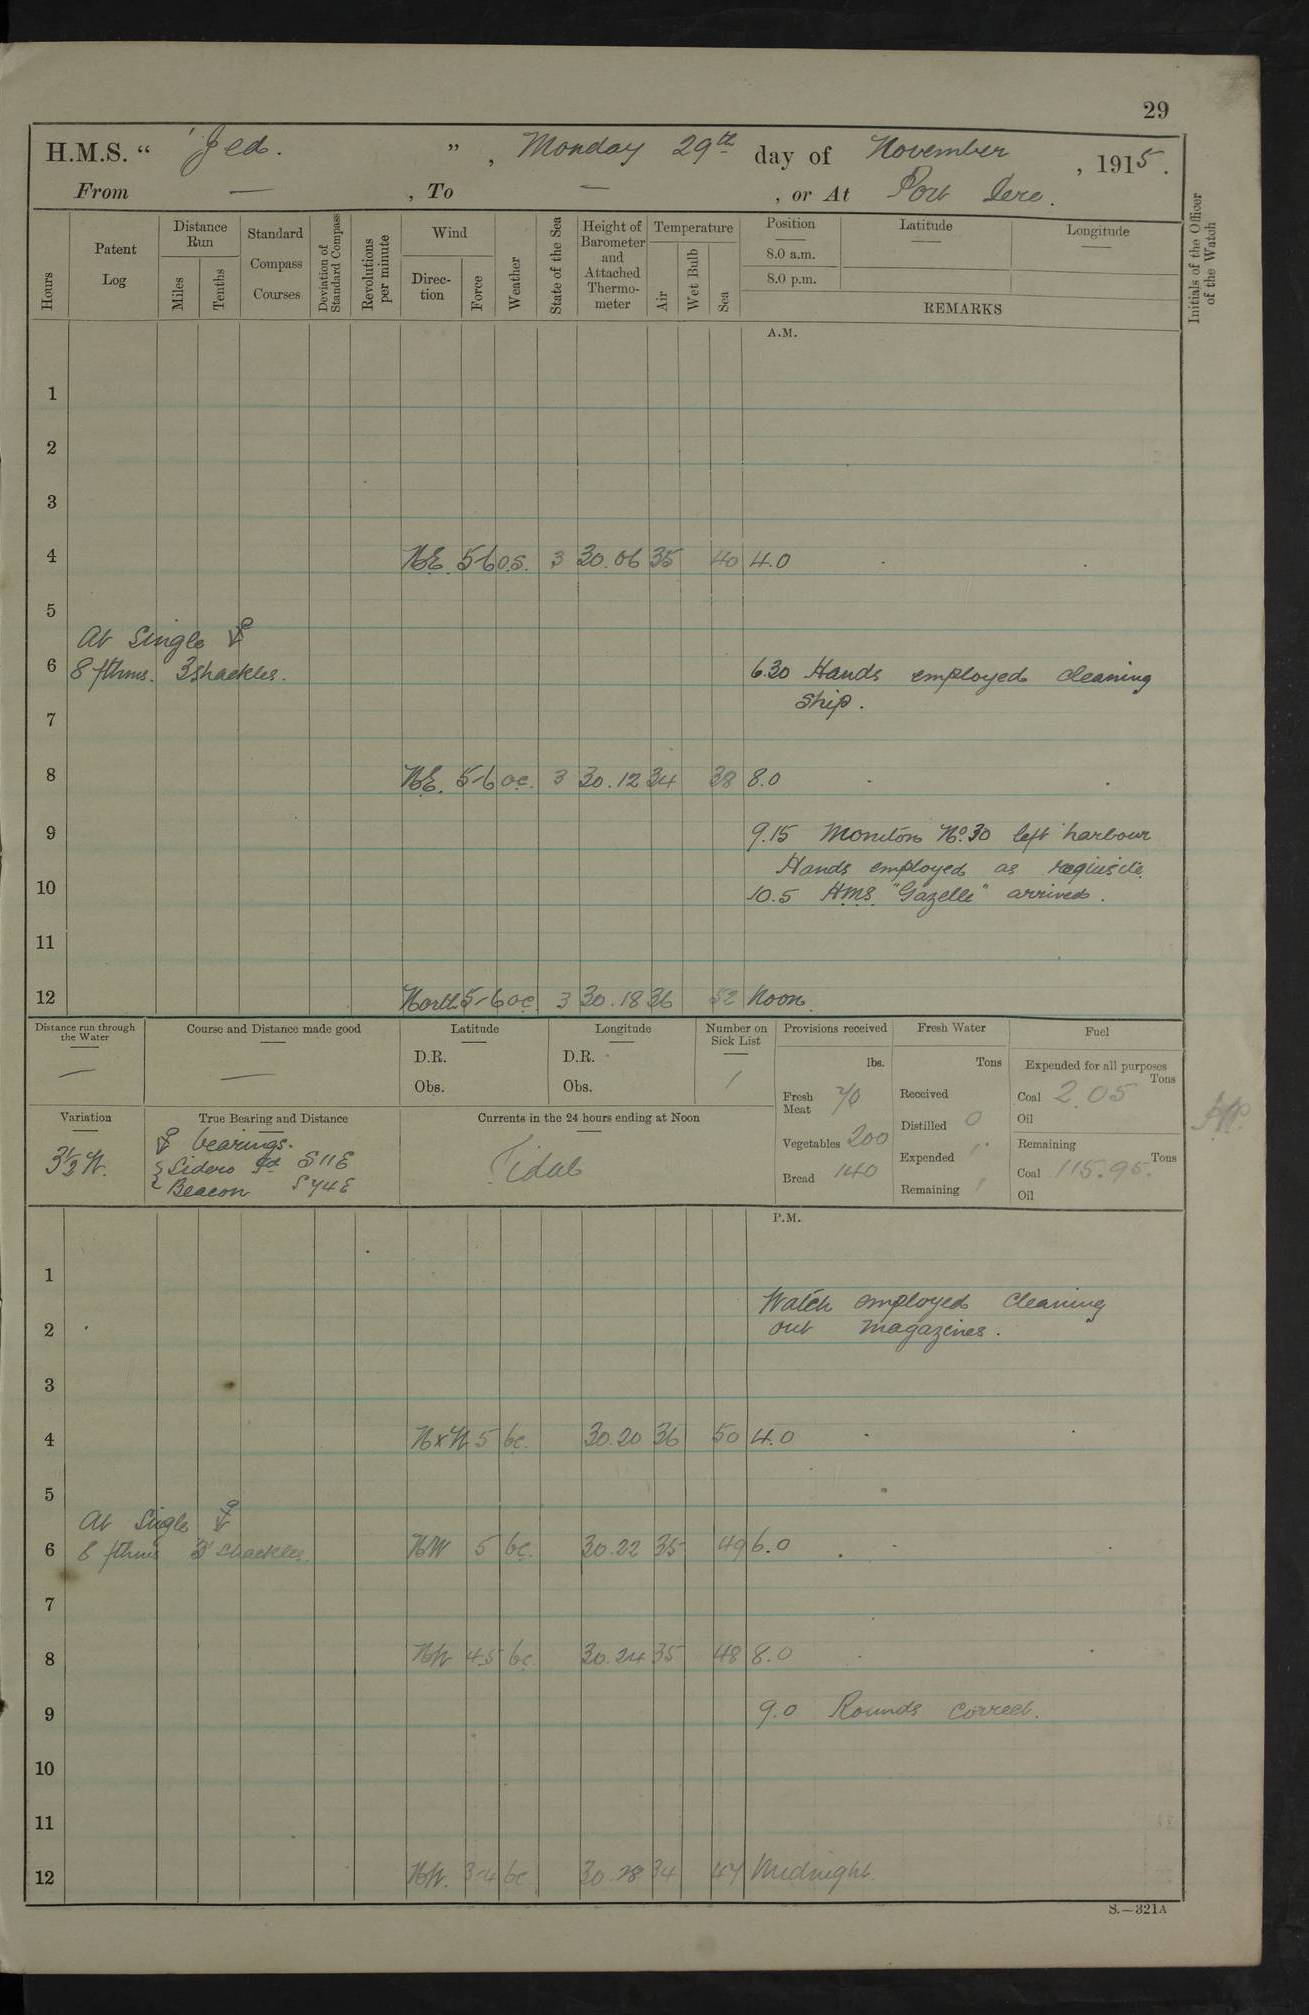 29
H.M.S. "Jed.", Monday 29th day of November, 1915.
From —, To —, or At Port Iero.
Hours
Patent Log
Distance Run
Miles
Tenths
Standard Compass Courses
Deviation of Standard Compass
Revolutions per minute
Wind
Direction
Force
Weather
State of the Sea
Height of Barometer and Attached Thermometer
Temperature
Air
Wet Bulb
Sea
Position
8.0 a.m.
8.0 p.m.
Latitude
Longitude
REMARKS
Initials of the Officer of the Watch
A.M.
1
2
3
4 NE. 5-6 o.s. 3 30.06 35 40 4.0
5
At Single
6 8 fthms. 3 shackles. 6.30 Hands employed cleaning
ship.
7
8 NE. 5-6 oc. 3 30.12 34 38 8.0
9 9.15 Monitor No. 30 left harbour
Hands employed as requisite
10 10.5 H.M.S. "Gazelle" arrived.
11
12 North 5-6 oc 3 30.18 36 52 Noon.
Distance run through the Water
—
Course and Distance made good
—
Latitude
D.R.
Obs.
Longitude
D.R.
Obs.
Number on Sick List
1
Provisions received
lbs.
Fresh Meat 70
Vegetables 200
Bread 140
Fresh Water
Tons
Received
Distilled 0
Expended
Remaining
Fuel
Expended for all purposes
Tons
Coal 2.05
Oil
Remaining
Tons
Coal 115.95.
Oil
Variation
3½ W.
True Bearing and Distance
bearings.
Sidero Id S11E
Beacon S74E
Currents in the 24 hours ending at Noon
Tidal
P.M.
1
Watch employed cleaning
2 out magazines.
3
4 NxW 5 bc. 30.20 36 50 4.0
5
At Single
6 8 fthms 3 shackles. NW 5 bc. 30.22 35 49 6.0
7
8 NW 4.5 bc 30.24 35 48 8.0
9 9.0 Rounds correct.
10
11
12 NW. 3-4 bc 30.28 34 47 Midnight.
S.—321A